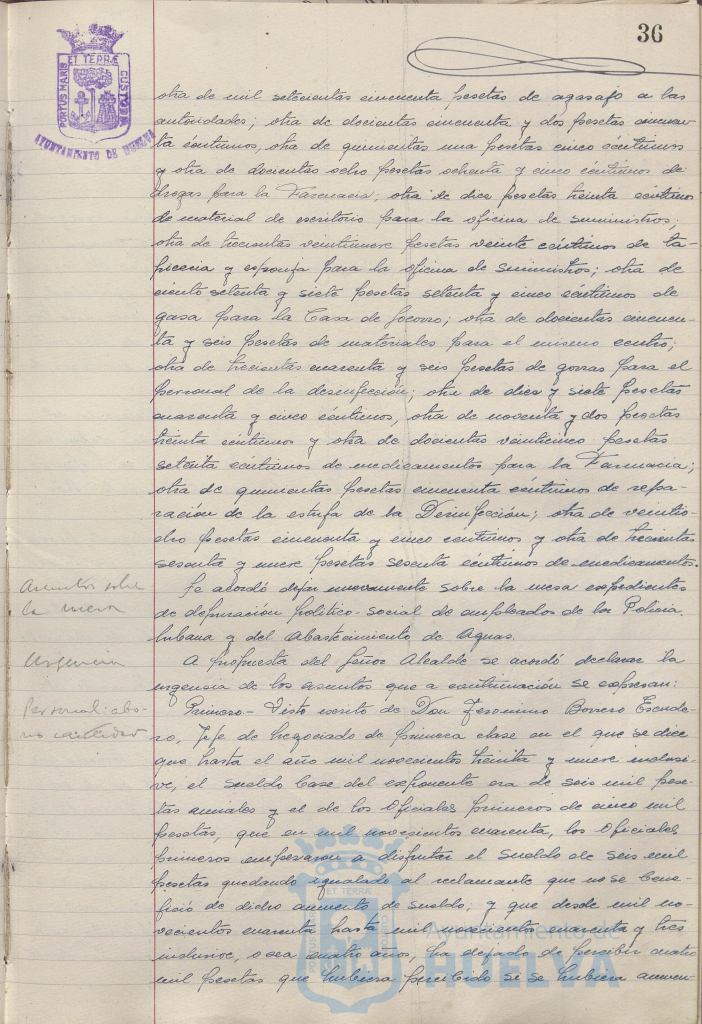 36
PORTUS MARIS ET TERRÆ CUSTODIA
AYUNTAMIENTO DE HUELVA
otra de mil setecientas cincuenta pesetas de agasajo a las
autoridades; otra de docientas cincuenta y dos pesetas cincuen-
ta céntimos, otra de quinientas una pesetas cinco céntimos
y otra de docientas ocho pesetas ochenta y cinco céntimos de
drogas para la Farmacia; otra de diez pesetas treinta céntimos
de material de escritorio para la oficina de suministros;
otra de trecientas veintinueve pesetas veinte céntimos de ta-
piceria y esponja para la oficina de suministros; otra de
ciento setenta y siete pesetas setenta y cinco céntimos de
gasa para la Casa de Socorro; otra de docientas cincuen-
ta y seis pesetas de materiales para el mismo centro;
otra de trecientas cuarenta y seis pesetas de gorras para el
personal de la desinfección; otra de diez y siete pesetas
cuarenta y cinco céntimos, otra de noventa y dos pesetas
treinta céntimos y otra de docientas veinticinco pesetas
setenta céntimos de medicamentos para la Farmacia;
otra de quinientas pesetas cincuenta céntimos de repa-
ración de la estufa de la Desinfección; otra de veintio-
cho pesetas cincuenta y cinco céntimos y otra de trecientas
sesenta y nueve pesetas sesenta céntimos de medicamentos.
Asuntos sobre
la mesa
Se acordó dejar nuevamente sobre la mesa expedientes
de depuración politico-social de empleados de la Policia
Urbana y del Abastecimiento de Aguas.
Urgencia
A propuesta del Señor Alcalde se acordó declarar la
urgencia de los asuntos que a continuación se expresan:
Personal: abo-
no cantidad
Primero- Visto escrito de Don Jeronimo Borrero Escude-
ro, Jefe de Negociado de primera clase en el que se dice
que hasta el año mil novecientos treinta y nueve inclusi-
ve, el sueldo base del exponente era de seis mil pese-
tas anuales y el de los Oficiales primeros de cinco mil
pesetas, que en mil novecientos cuarenta, los Oficiales
primeros empezaron a disfrutar el sueldo de seis mil
pesetas quedando igualado al reclamante que no se bene-
fició de dicho aumento de sueldo; y que desde mil no-
vecientos cuarenta hasta mil novecientos cuarenta y tres
inclusive, o sea cuatro años, ha dejado de percibir cuatro
mil pesetas que hubiera percibido si se hubiera aumen-
PORTUS MARIS ET TERRÆ CUSTODIA
Ayuntamiento de
HUELVA